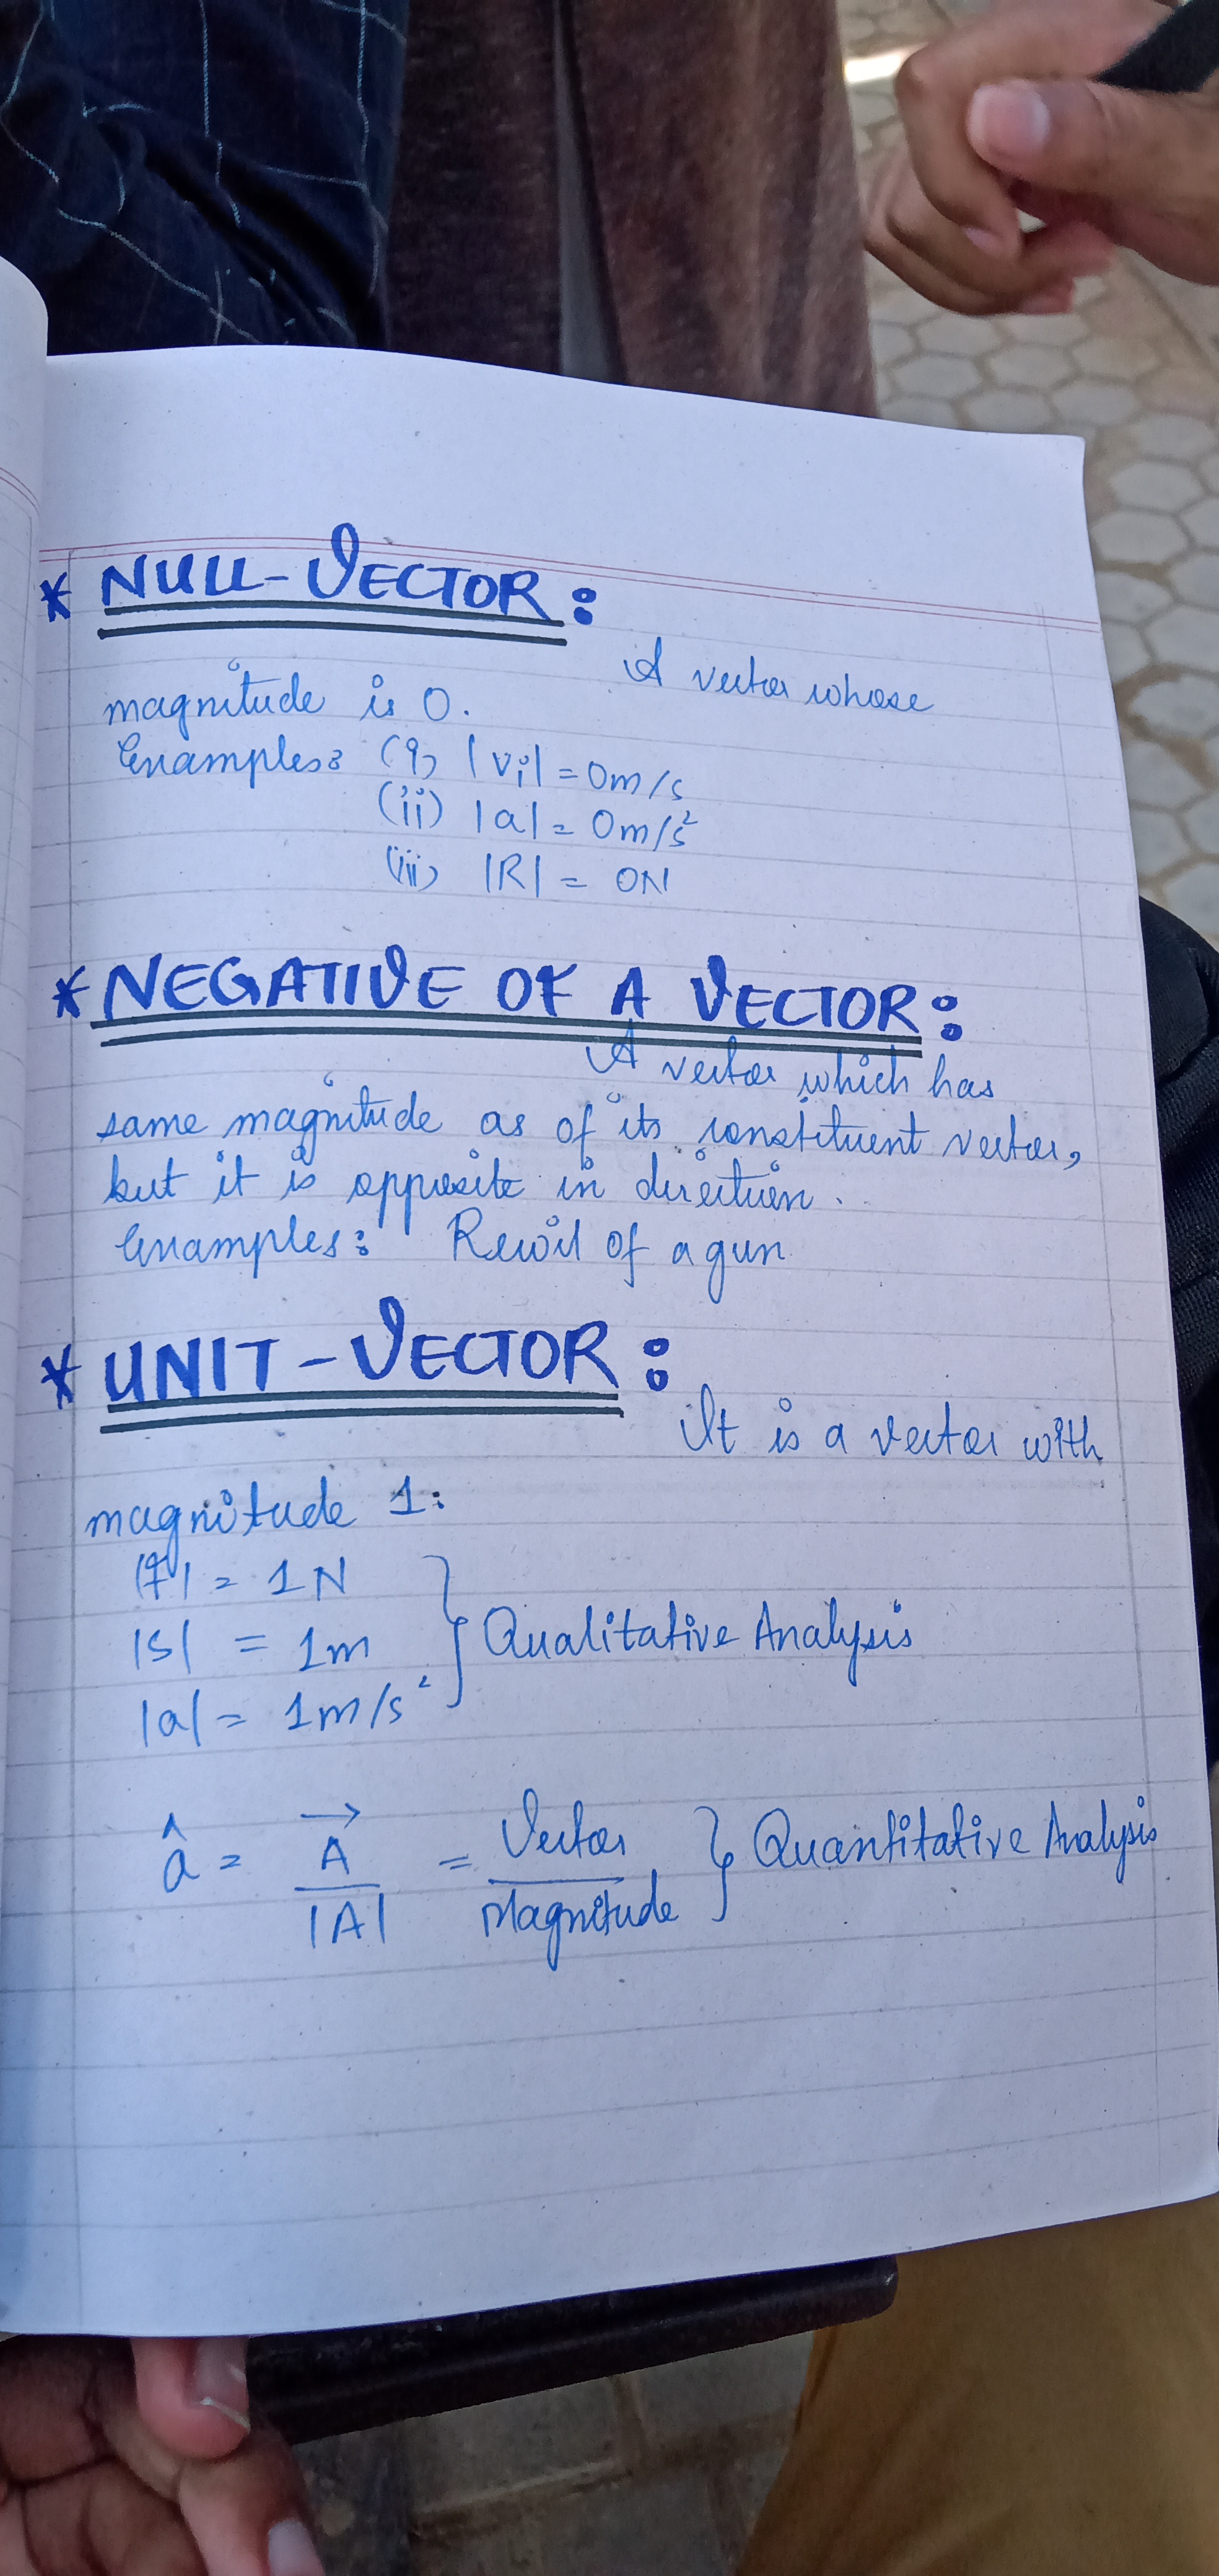 * NULL-VECTOR:
A vector whose
magnitude is 0.
Examples: (i) |Vi| = 0m/s
(ii) |a| = 0m/s²
(iii) |R| = 0N
* NEGATIVE OF A VECTOR:
A vector which has
same magnitude as of its constituent vector,
but it is opposite in direction.
Examples: Recoil of a gun
* UNIT-VECTOR:
It is a vector with
magnitude 1.
|F| = 1N
|S| = 1m } Qualitative Analysis
|a| = 1m/s²
â = A⃗ / |A| = Vector / Magnitude } Quantitative Analysis